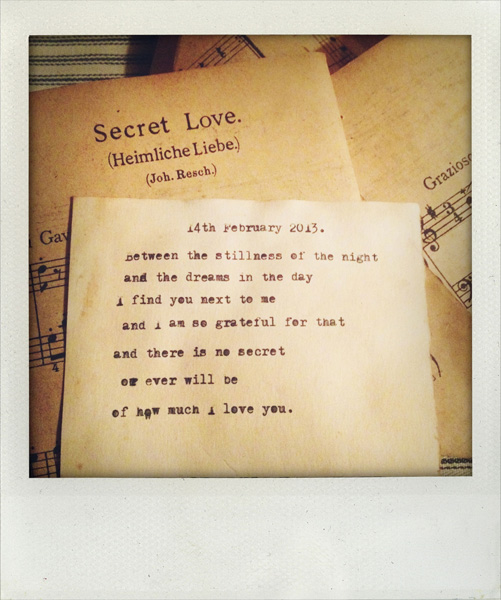 Secret Love.
(Heimliche Liebe.)
(Joh. Resch.)
Grazioso
Gav
14th February 2013.
between the stillness of the night
and the dreams in the day
I find you next to me
and I am so grateful for that
and there is no secret
or ever will be
of how much I love you.
4